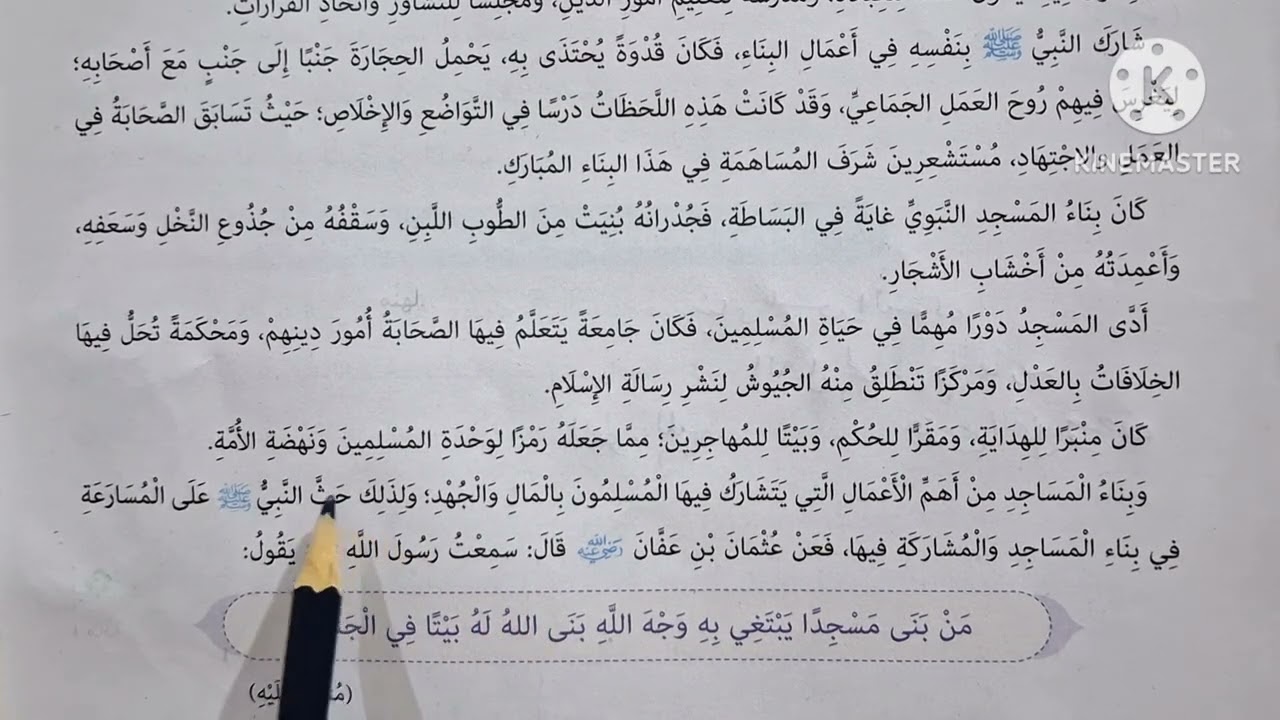 وَمَدْرَسَةً لِتَعْلِيمِ أُمُورِ الدِّينِ، وَمَجْلِسًا لِلتَّشَاوُرِ وَاتِّخَاذِ القَرَارَاتِ.
شَارَكَ النَّبِيُّ ﷺ بِنَفْسِهِ فِي أَعْمَالِ البِنَاءِ، فَكَانَ قُدْوَةً يُحْتَذَى بِهِ، يَحْمِلُ الحِجَارَةَ جَنْبًا إِلَى جَنْبٍ مَعَ أَصْحَابِهِ؛
لِيَغْرِسَ فِيهِمْ رُوحَ العَمَلِ الجَمَاعِيِّ، وَقَدْ كَانَتْ هَذِهِ اللَّحَظَاتُ دَرْسًا فِي التَّوَاضُعِ وَالإِخْلَاصِ؛ حَيْثُ تَسَابَقَ الصَّحَابَةُ فِي
العَمَلِ وَالِاجْتِهَادِ، مُسْتَشْعِرِينَ شَرَفَ المُسَاهَمَةِ فِي هَذَا البِنَاءِ المُبَارَكِ.
KINEMASTER
كَانَ بِنَاءُ المَسْجِدِ النَّبَوِيِّ غايَةً فِي البَسَاطَةِ، فَجُدْرانُهُ بُنِيَتْ مِنَ الطُّوبِ اللَّبِنِ، وَسَقْفُهُ مِنْ جُذُوعِ النَّخْلِ وَسَعَفِهِ،
وَأَعْمِدَتُهُ مِنْ أَخْشَابِ الأَشْجَارِ.
أَدَّى المَسْجِدُ دَوْرًا مُهِمًّا فِي حَيَاةِ المُسْلِمِينَ، فَكَانَ جَامِعَةً يَتَعَلَّمُ فِيهَا الصَّحَابَةُ أُمُورَ دِينِهِمْ، وَمَحْكَمَةً تُحَلُّ فِيهَا
الخِلَافَاتُ بِالعَدْلِ، وَمَرْكَزًا تَنْطَلِقُ مِنْهُ الجُيُوشُ لِنَشْرِ رِسَالَةِ الإِسْلَامِ.
كَانَ مِنْبَرًا لِلهِدَايَةِ، وَمَقَرًّا لِلحُكْمِ، وَبَيْتًا لِلمُهاجِرِينَ؛ مِمَّا جَعَلَهُ رَمْزًا لِوَحْدَةِ المُسْلِمِينَ وَنَهْضَةِ الأُمَّةِ.
وَبِنَاءُ الْمَسَاجِدِ مِنْ أَهَمِّ الْأَعْمَالِ الَّتِي يَتَشَارَكُ فِيهَا الْمُسْلِمُونَ بِالْمَالِ وَالْجُهْدِ؛ وَلِذَلِكَ حَثَّ النَّبِيُّ ﷺ عَلَى الْمُسَارَعَةِ
فِي بِنَاءِ الْمَسَاجِدِ وَالْمُشَارَكَةِ فِيهَا، فَعَنْ عُثْمَانَ بْنِ عَفَّانَ رَضِيَ اللهُ عَنْهُ قَالَ: سَمِعْتُ رَسُولَ اللَّهِ يَقُولُ:
مَنْ بَنَى مَسْجِدًا يَبْتَغِي بِهِ وَجْهَ اللَّهِ بَنَى اللهُ لَهُ بَيْتًا فِي